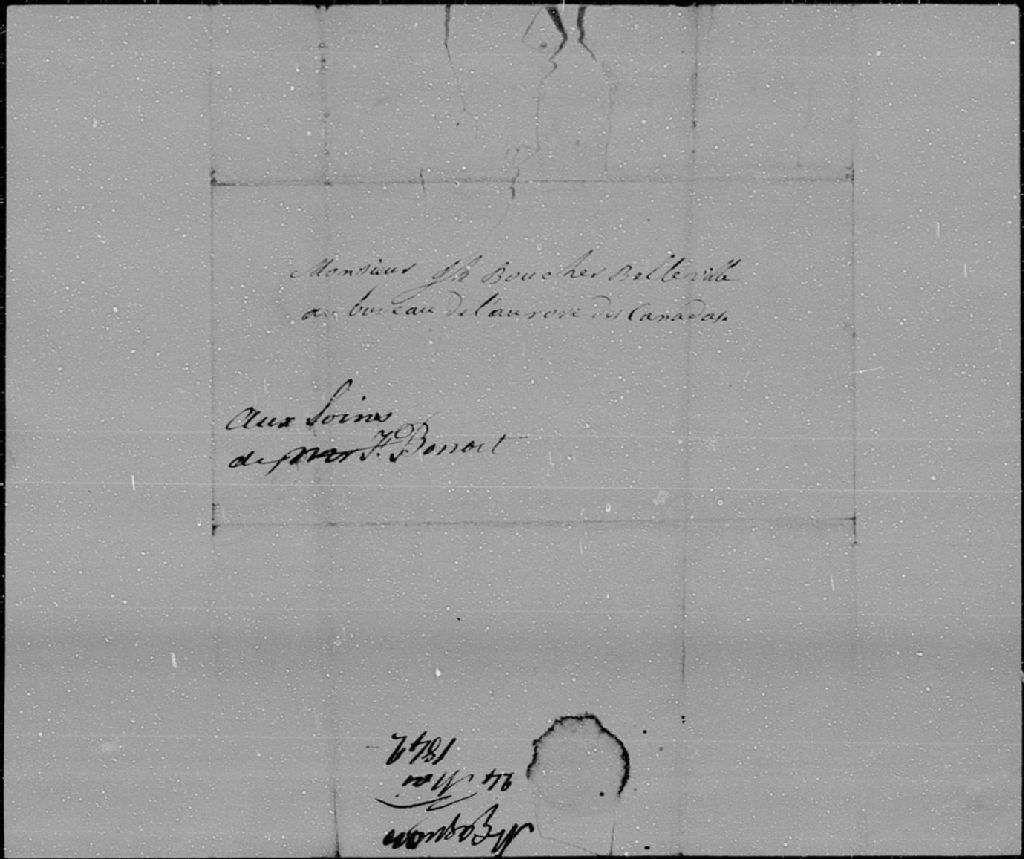 Monsieur Jh Boucher Belleville
au bureau de l'aurore des Canadas
Aux Soins
de F. Benoit
24 Mai
1842